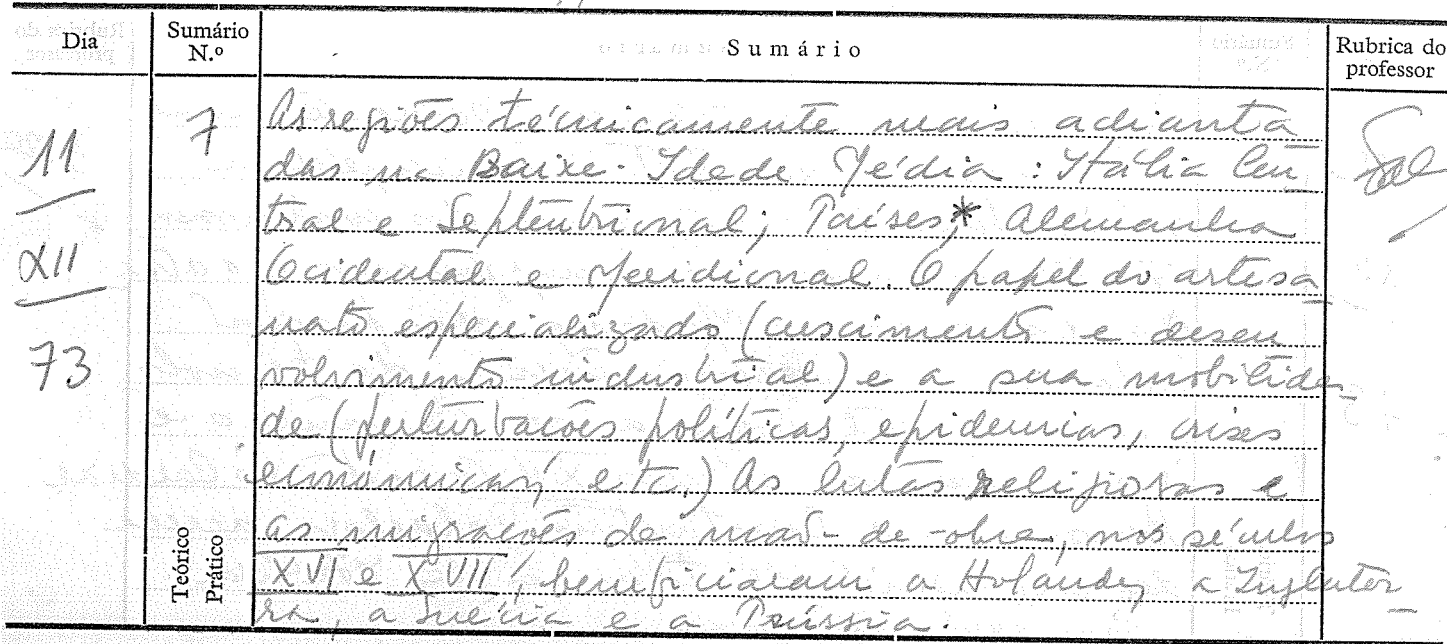 Dia Sumário N.º Sumário Rubrica do professor
11 7 As regiões técnicamente mais adianta
das na Baixa-Idade Média: Itália Cen
XII tral e Septentrional; Países,* Alemanha
Ocidental e Meridional. O papel do artesa_
73 nato especializado (crescimento e desen
volvimento industrial) e a sua mobilida_
de (perturbações políticas, epidemias, crises
económicas, etc.) As lutas religiosas e
as migrações de mão-de-obra, nos séculos
Teórico Prático XVI e XVII, beneficiaram a Holanda, a Inglater_
ra, a Suécia e a Prússia.